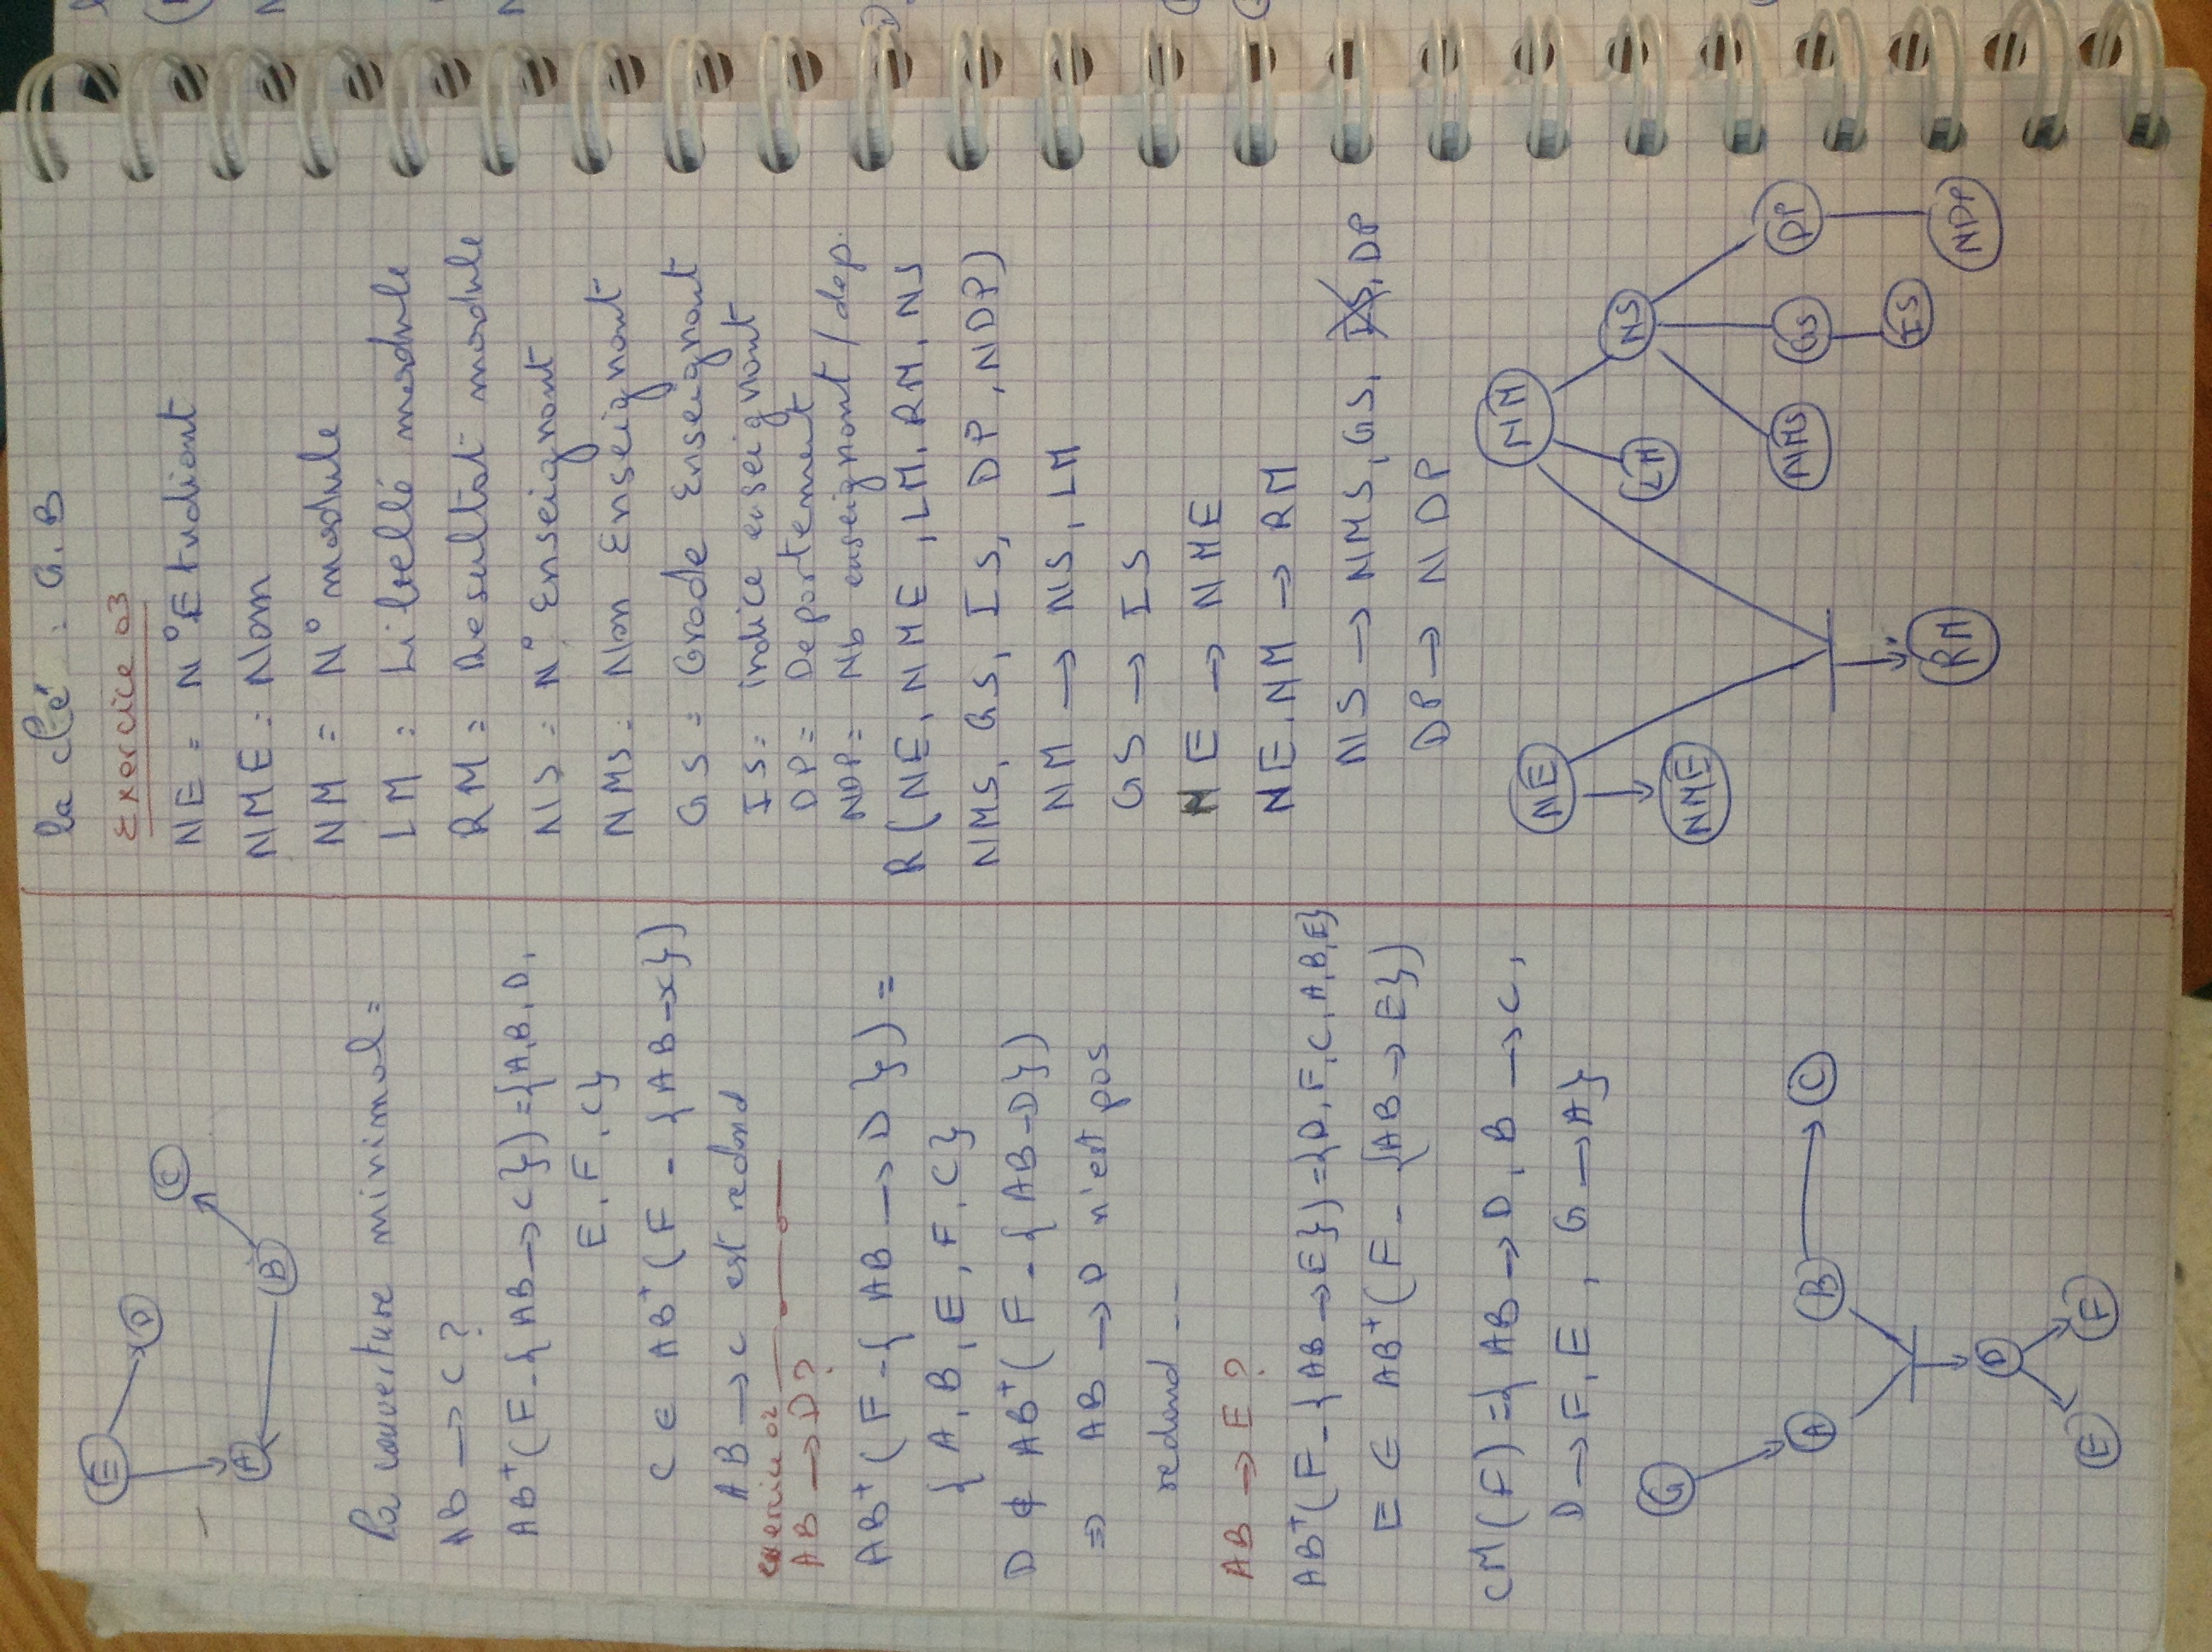 E
D
C
A
B
la couverture minimal =
AB → C ?
AB⁺ ( F - { AB → C } ) = { A, B, D,
E, F, C }
C ∈ AB⁺ ( F - { AB → c } )
AB → c est redond
exercice 02
AB → D ?
AB⁺ ( F - { AB → D } ) =
{ A, B, E, F, C }
D ∉ AB⁺ ( F - { AB - D } )
⇒ AB → D n'est pas
redond --
AB → E ?
AB⁺ ( F - { AB → E } ) = { D, F, C, A, B, E }
E ∈ AB⁺ ( F - { AB → E } )
CM ( F ) = { AB → D, B → C,
D → F, E , G → A }
G
A B C
D
E F
la clé : G, B
Exercice 03
NE = N° Etudiant
NME = Nom
NM = N° module
LM = Libellé module
RM = Resultat module
NS = N° Enseignant
NMS = Non Enseignant
GS = Grade Enseignant
IS = indice enseignant
DP = Departement
NDP = Nb enseignant / dep.
R ( NE, NME , LM, RM, NS
NMS, GS, IS, DP, NDP )
NM → NS, LM
GS → IS
NE → NME
NE, NM → RM
NS → NMS, GS, IS, DP
DP → NDP
NE NM
LM NS
NME
NMS GS DP
IS
RM NDP